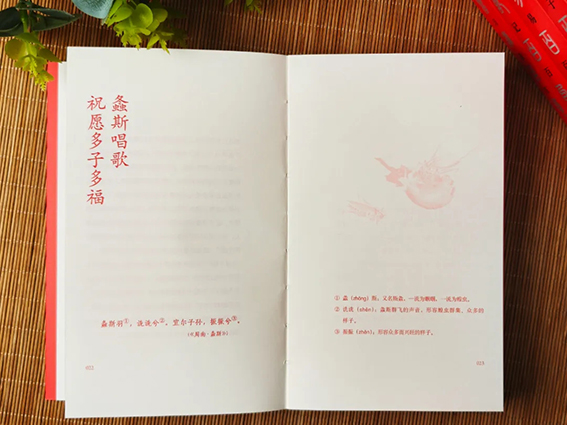 螽斯唱歌
祝愿多子多福
螽斯羽①，诜诜兮②，宜尔子孙，振振兮③。
（《周南·螽斯》）
① 螽（zhōng）斯，又名斯螽，一说为蝈蝈，一说为蝗虫。
② 诜诜（shēn），螽斯群飞的声音，形容数量群集、众多的
样子。
③ 振振（zhēn），形容众多而兴旺的样子。